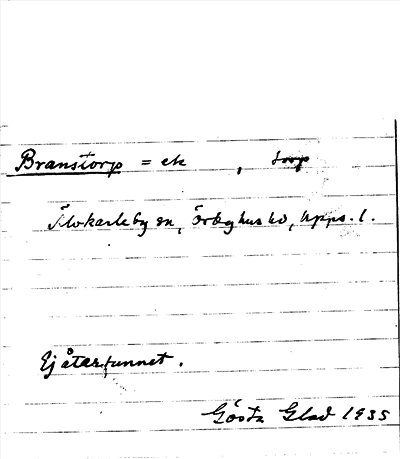 Branstorp = ek , torp
Älvkarleby sn, Örbyhus hd, Upps. l.
Ej återfunnet.
Gösta Glad 1935